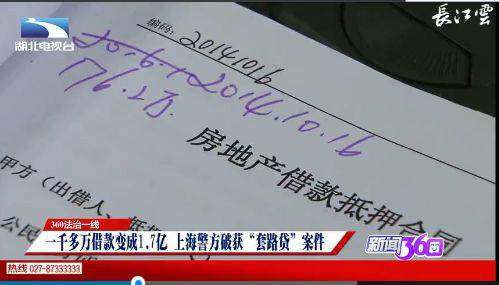 湖北电视台
長江雲
编码: 20141016
2014.10.16
176.2万
房地产借款抵押合同
甲方（出借人、
公民
360法治一线
一千多万借款变成1.7亿 上海警方破获“套路贷”案件
新闻360
热线 027-87333333